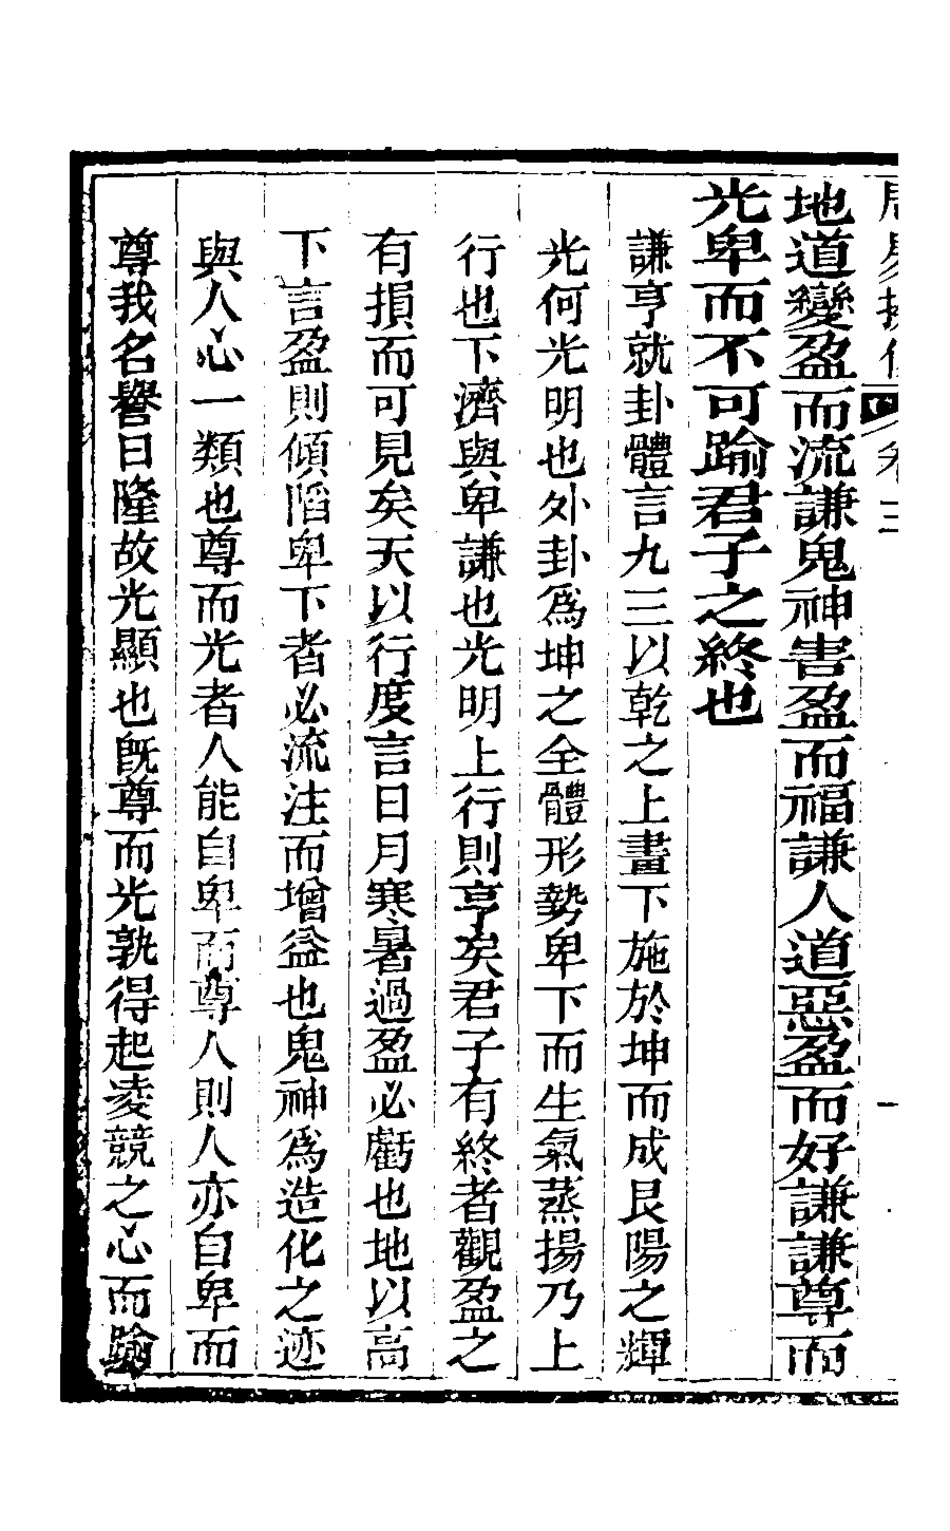 地道變盈而流謙鬼神害盈而福謙人道惡盈而好謙謙尊而
光卑而不可踰君子之終也
謙亨就卦體言九三以乾之上畫下施於坤而成艮陽之輝
光何光明也外卦爲坤之全體形勢卑下而生氣蒸揚乃上
行也下濟與卑謙也光明上行則亨矣君子有終者觀盈之
有損而可見矣天以行度言日月寒暑過盈必虧也地以高
下言盈則傾滔卑下者必流注而增益也鬼神爲造化之迹
與人心一類也尊而光者人能自卑而尊人則人亦自卑而
尊我名譽日隆故光顯也旣尊而光孰得起凌競之心而踰